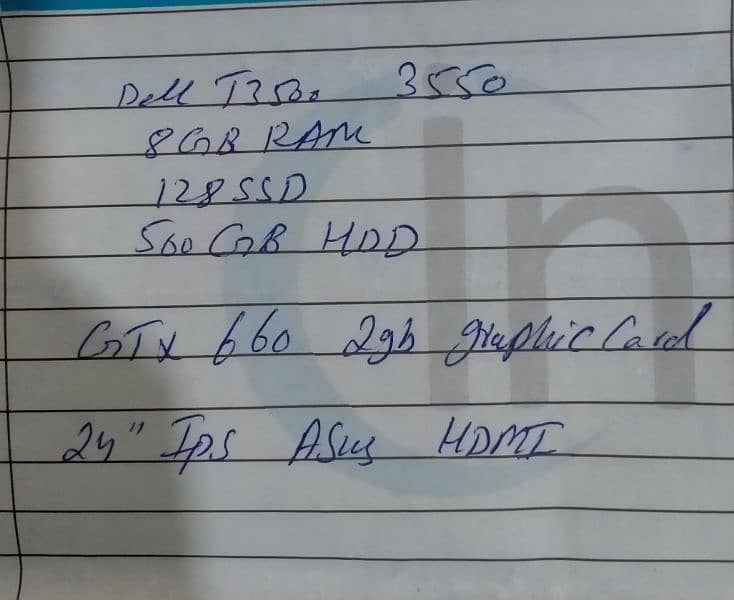 Dell T3500 3550
8GB RAM
128 SSD
500 GB HDD
GTX 660 2gb graphic Card
24" Ips Asus HDMI